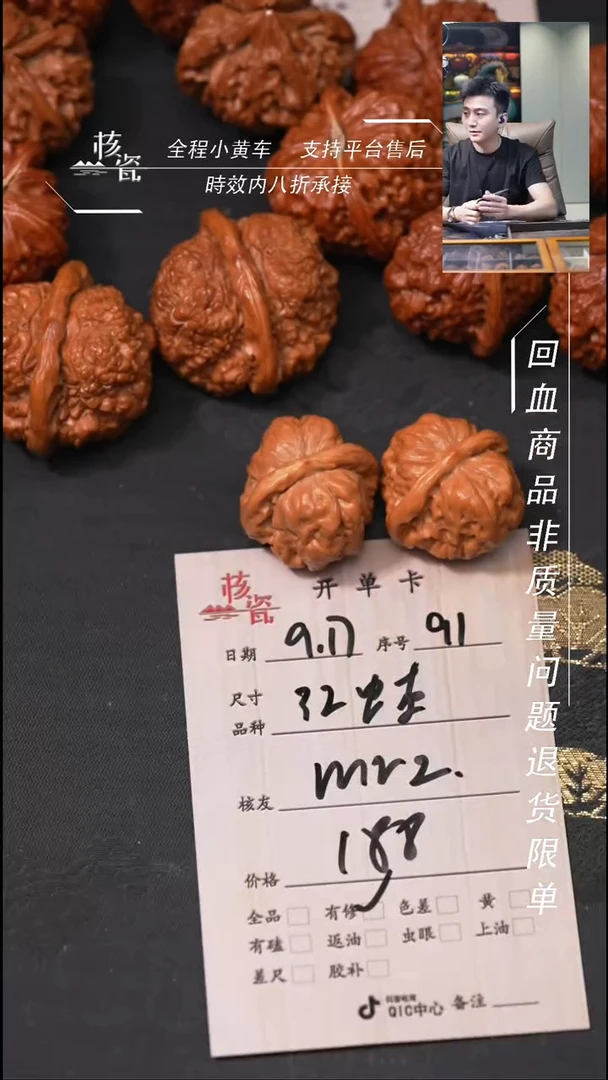 核瓷
全程小黄车 支持平台售后
時效内八折承接
回血商品非质量问题退货限单
核瓷
开单卡
日期 9.17 序号 91
尺寸
品种 32蛙
核友 mr z.
价格 188
全品 有修 色差 黄
有磕 返油 虫眼 上油
差尺 胶补
抖音电商
QIC中心 备注